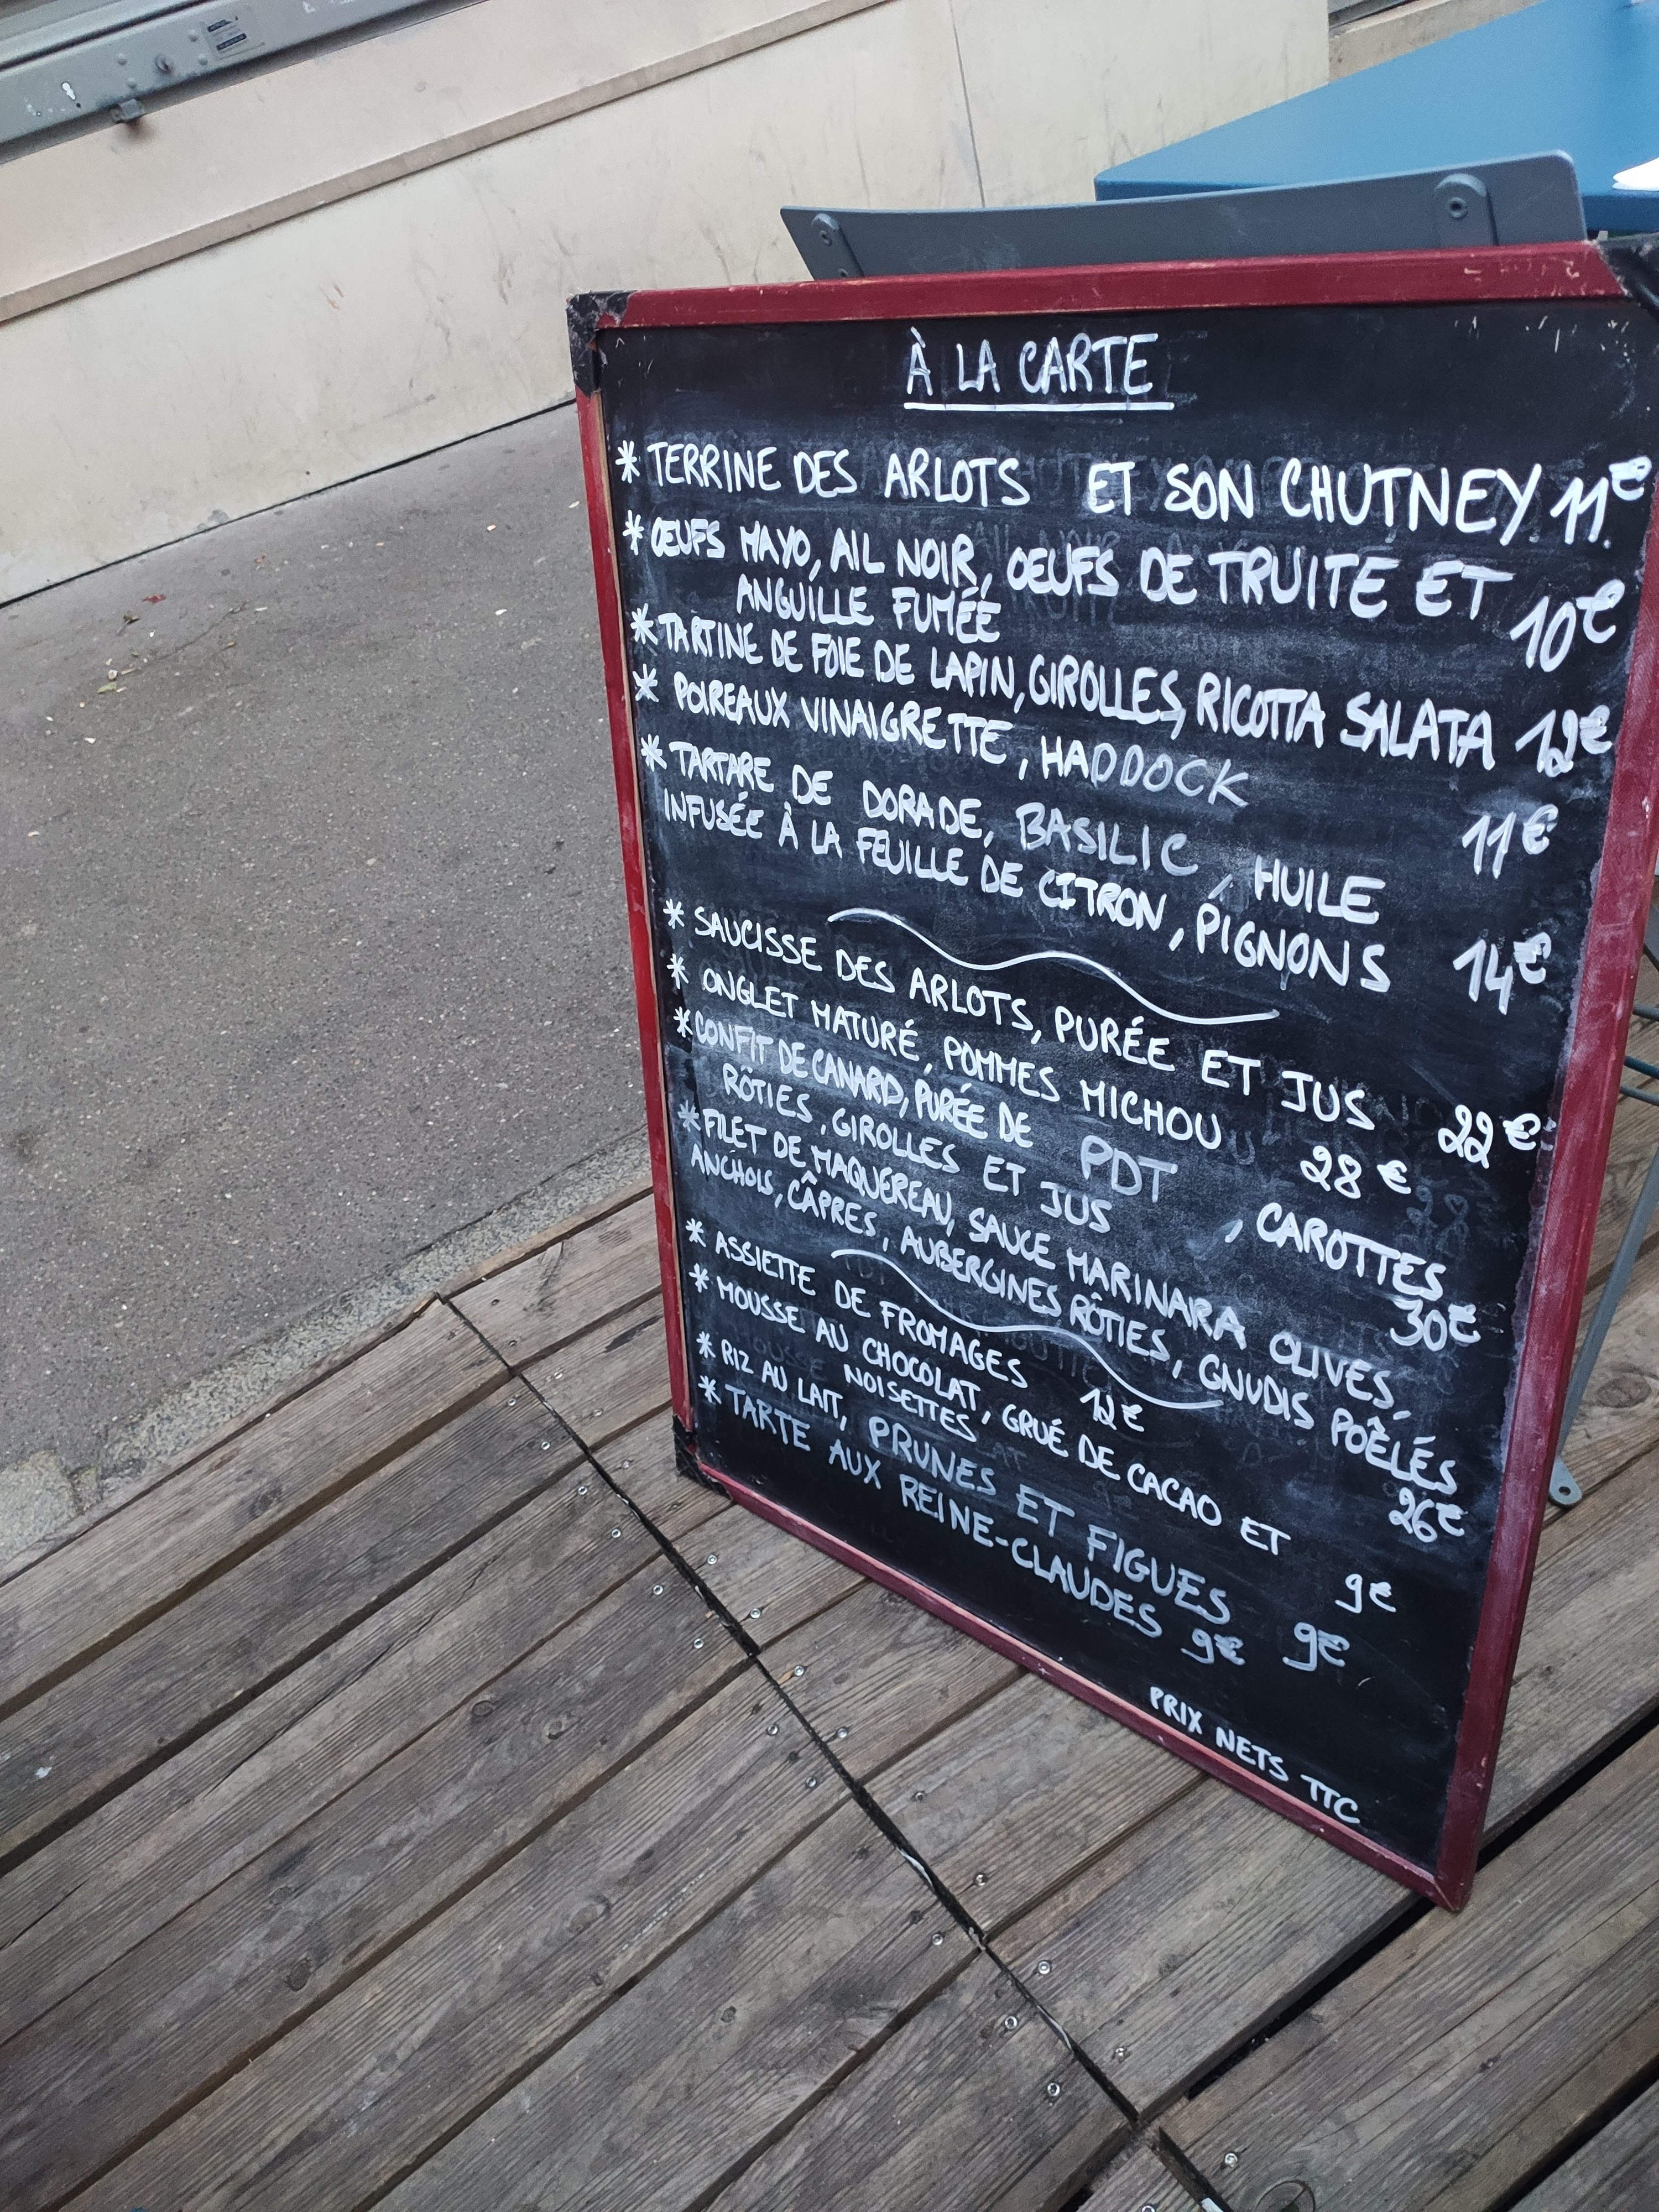 À LA CARTE
* TERRINE DES ARLOTS ET SON CHUTNEY 11€
* ŒUFS MAYO, AIL NOIR, ŒUFS DE TRUITE ET
ANGUILLE FUMÉE 10€
* TARTINE DE FOIE DE LAPIN, GIROLLES, RICOTTA SALATA 12€
* POIREAUX VINAIGRETTE, HADDOCK 11€
* TARTARE DE DORADE, BASILIC, HUILE
INFUSÉE À LA FEUILLE DE CITRON, PIGNONS 14€
* SAUCISSE DES ARLOTS, PURÉE ET JUS 22€
* ONGLET MATURÉ, POMMES MICHOU 28€
* CONFIT DE CANARD, PURÉE DE PDT, CAROTTES
RÔTIES, GIROLLES ET JUS 30€
* FILET DE MAQUEREAU, SAUCE MARINARA OLIVES,
ANCHOIS, CÂPRES, AUBERGINES RÔTIES, GNUDIS POÊLÉS 26€
* ASSIETTE DE FROMAGES 12€
* MOUSSE AU CHOCOLAT, GRUÉ DE CACAO ET
NOISETTES 9€
* RIZ AU LAIT, PRUNES ET FIGUES 9€
* TARTE AUX REINE-CLAUDES 9€
PRIX NETS TTC